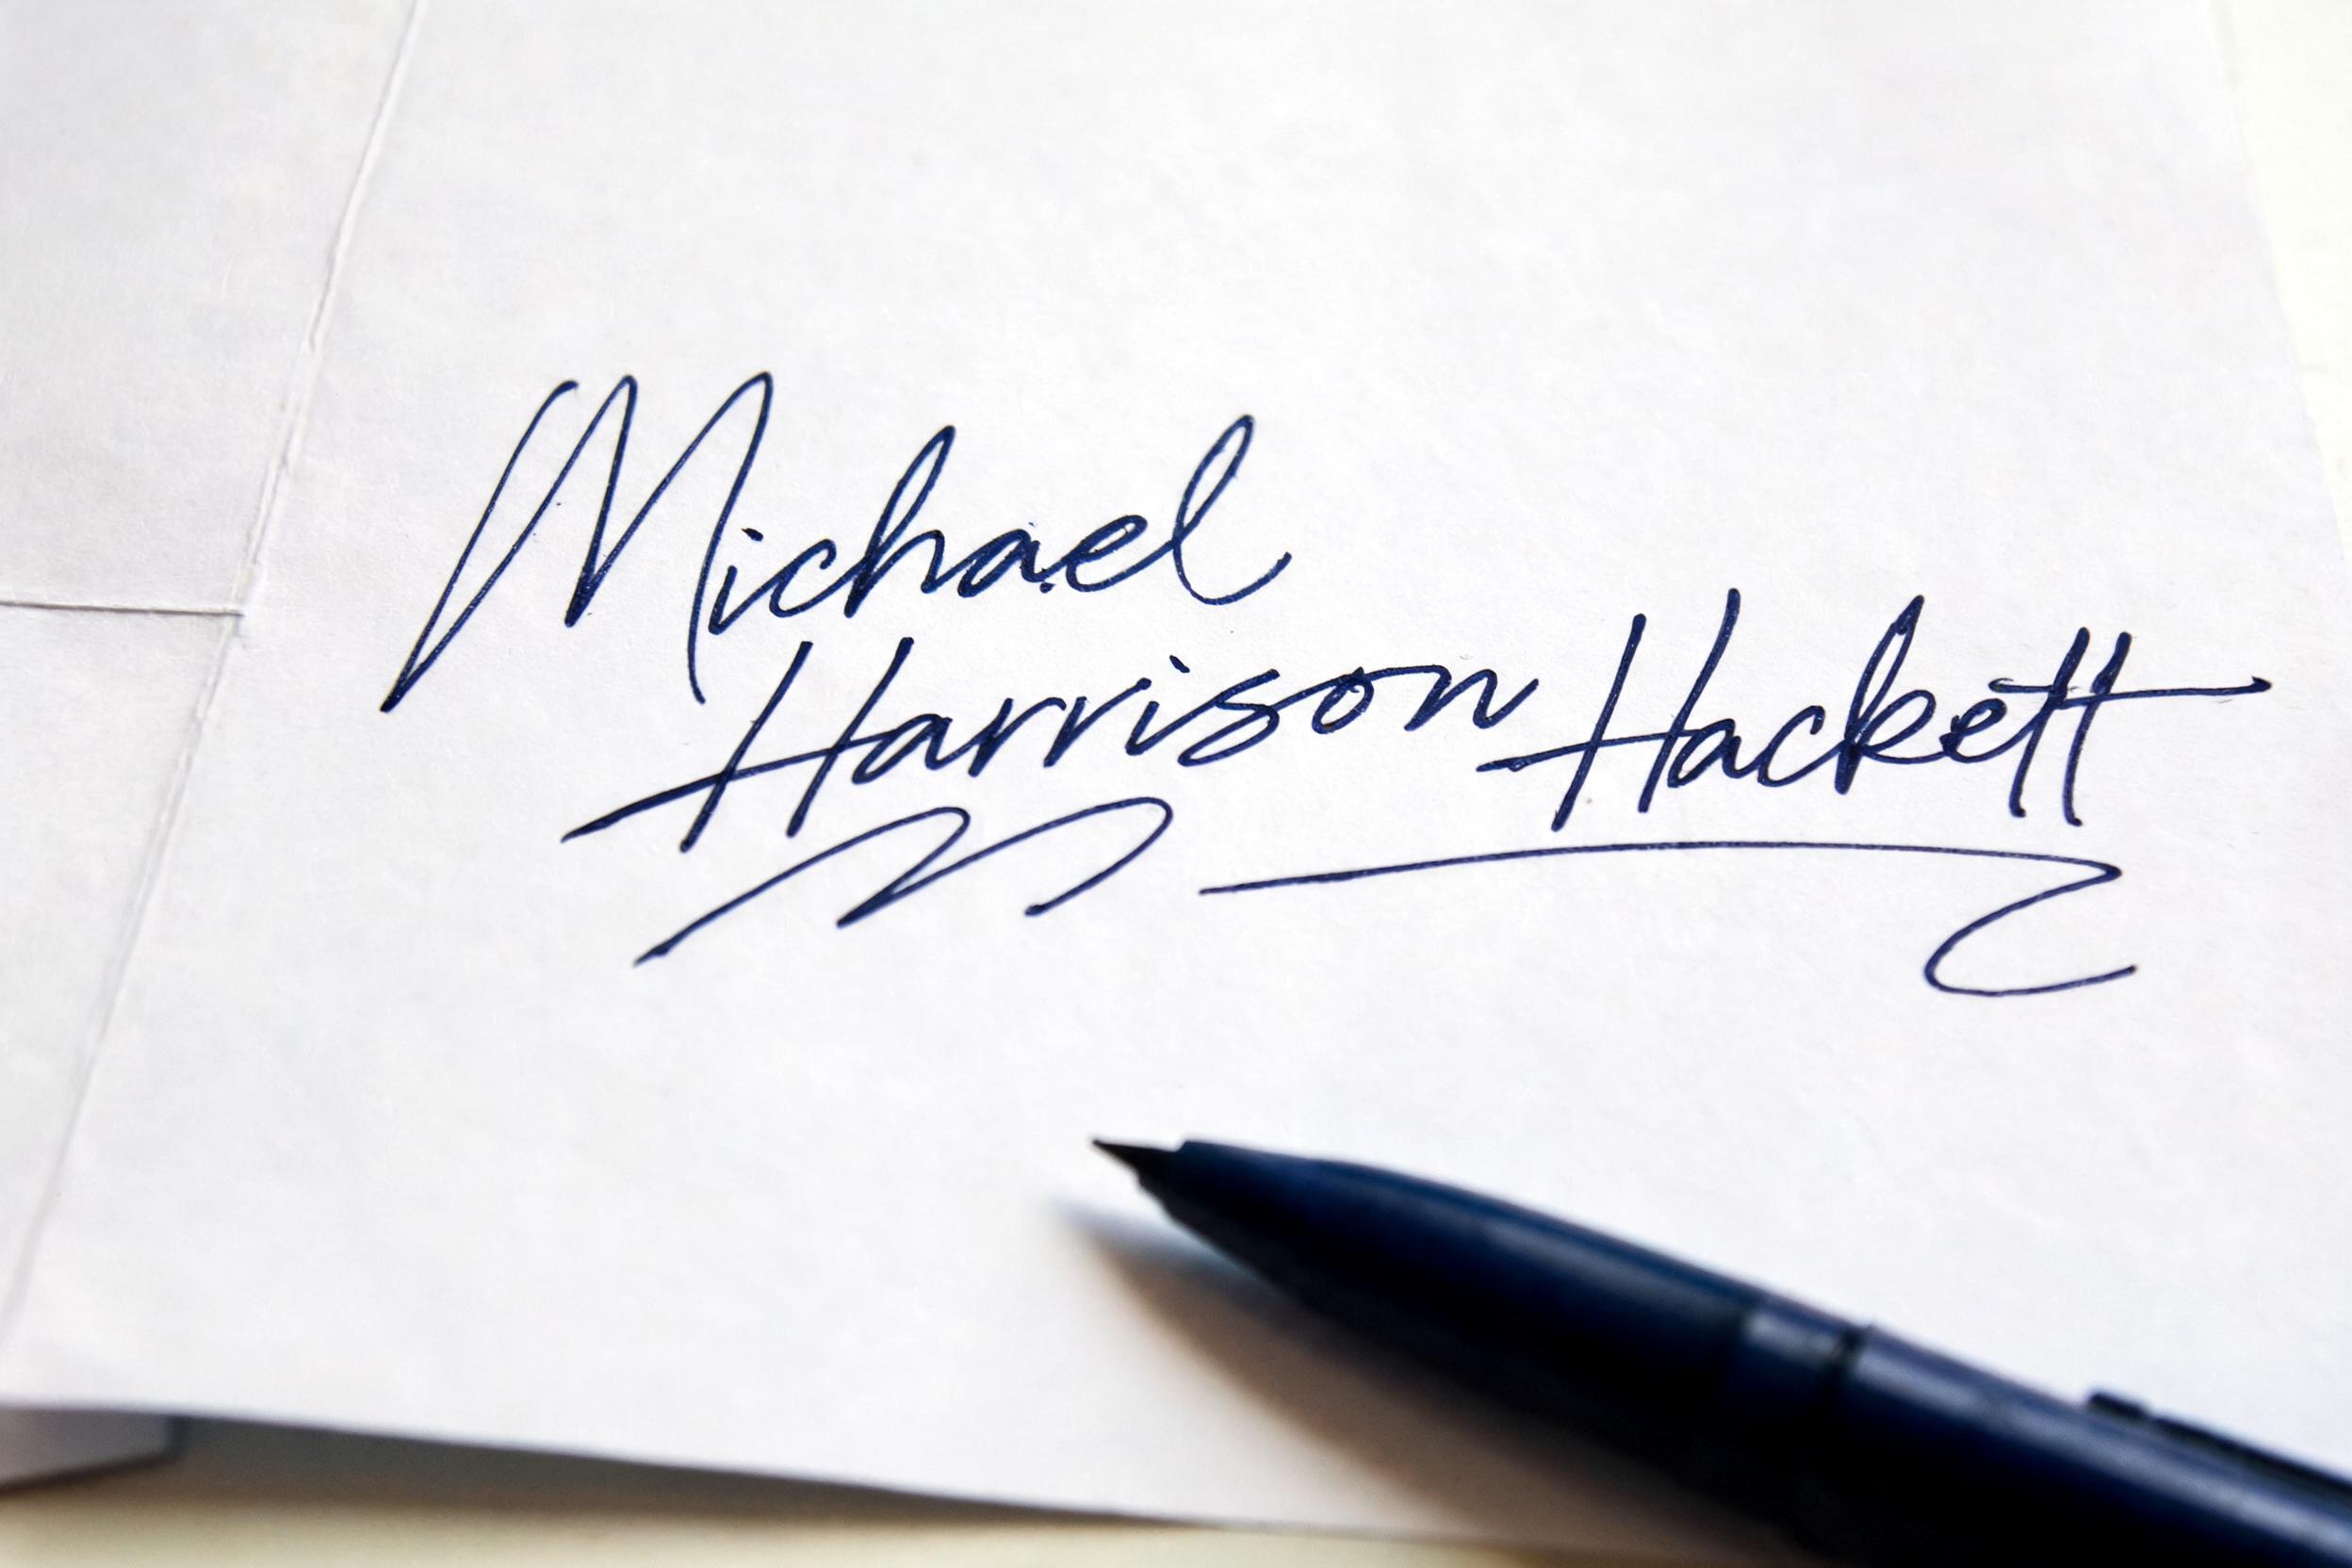 Michael
Harrison Hackett